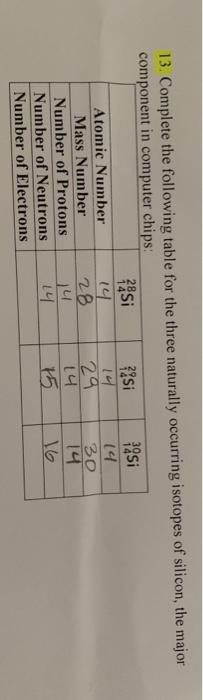 13. Complete the following table for the three naturally occurring isotopes of silicon, the major
component in computer chips:
²⁸₁₄Si ²⁹₁₄Si ³⁰₁₄Si
Atomic Number 14 14 14
Mass Number 28 29 30
Number of Protons 14 14 14
Number of Neutrons 14 15 16
Number of Electrons